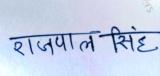 राजपाल सिंह